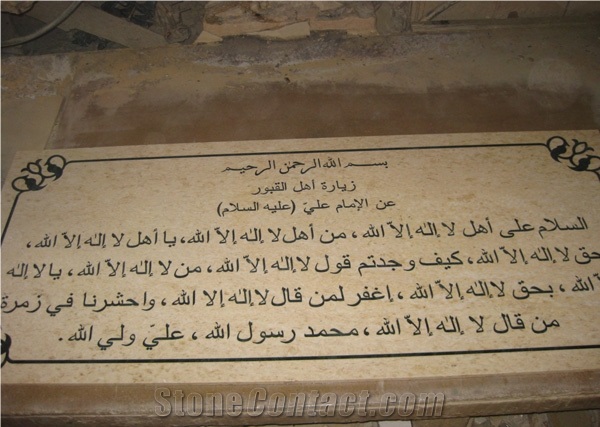 بسم الله الرحمن الرحيم
زيارة أهل القبور
عن الإمام عليّ (عليه السلام)
السلام على أهل لا إله إلاّ الله، من أهل لا إله إلاّ الله، يا أهل لا إله إلاّ الله،
بحق لا إله إلاّ الله، كيف وجدتم قول لا إله إلاّ الله، من لا إله إلاّ الله، يا لا إله
إلاّ الله، بحق لا إله إلاّ الله، إغفر لمن قال لا إله إلا الله، واحشرنا في زمرة
من قال لا إله إلاّ الله، محمد رسول الله، عليّ ولي الله.
StoneContact.com